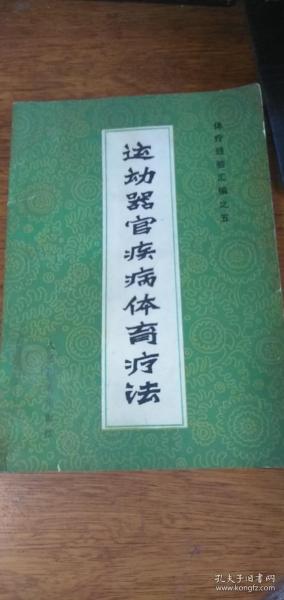 体疗经验汇编之五
运动器官疾病体育疗法
孔夫子旧书网
www.kongfz.com